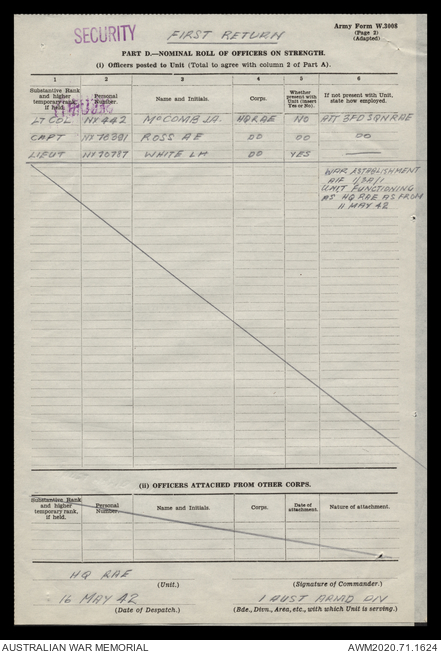 SECURITY
FIRST RETURN
Army Form W.3008
(Page 2)
(Adapted)
PART D.—NOMINAL ROLL OF OFFICERS ON STRENGTH.
(i) Officers posted to Unit (Total to agree with column 2 of Part A).
1 2 3 4 5 6
Substantive Rank and higher temporary rank, if held. Personal Number. Name and Initials. Corps. Whether present with Unit (insert Yes or No). If not present with Unit, state how employed.
LT COL NX 442 McCOMB J.A. HQ RAE NO ATT 3 FD SQN RAE
CAPT ROSS A E DO DO DO
LIEUT WHITE L H DO YES
WAR ESTABLISHMENT
AIF
UNIT FUNCTIONING
AS HQ RAE AS FROM
11 MAY 42
(ii) OFFICERS ATTACHED FROM OTHER CORPS.
Substantive Rank and higher temporary rank, if held. Personal Number. Name and Initials. Corps. Date of attachment. Nature of attachment.
HQ RAE
(Unit.) (Signature of Commander.)
16 MAY 42 1 AUST ARMD DIV
(Date of Despatch.) (Bde., Divn., Area, etc., with which Unit is serving.)
AUSTRALIAN WAR MEMORIAL AWM2020.71.1624